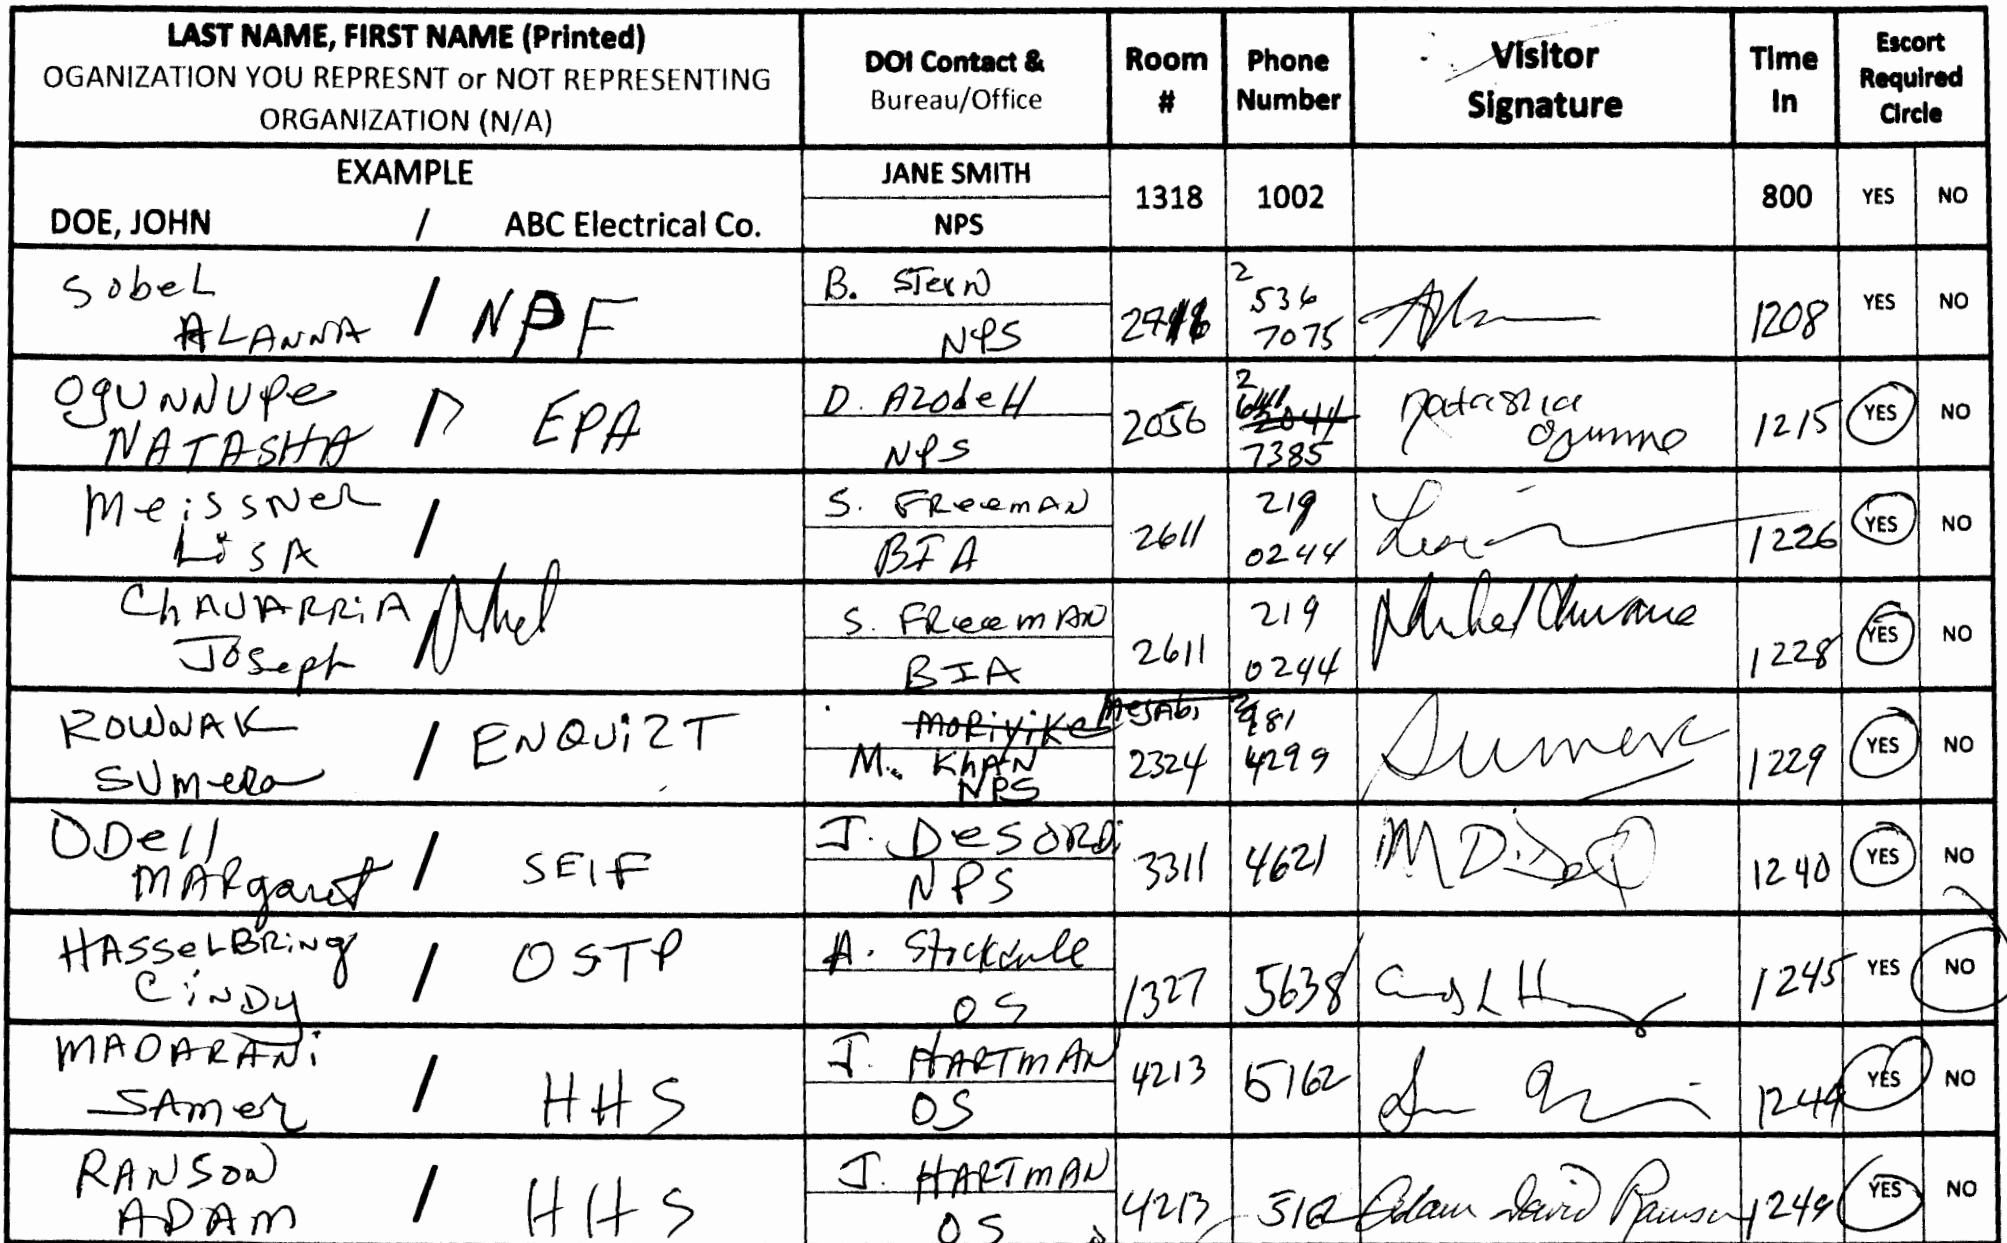 LAST NAME, FIRST NAME (Printed)
OGANIZATION YOU REPRESNT or NOT REPRESENTING
ORGANIZATION (N/A)
DOI Contact &
Bureau/Office
Room
#
Phone
Number
Visitor
Signature
Time
In
Escort
Required
Circle
EXAMPLE
DOE, JOHN / ABC Electrical Co.
JANE SMITH
NPS
1318
1002
800
YES
NO
Sobel
ALANNA
/ NPF
B. Stern
NPS
2
536
7075
1208
YES
NO
OgUNNUPe
NATASHA
/ EPA
D. AZodeH
NPS
2056
2
641
2044
7385
Natasha
Ogunno
1215
YES
NO
MeissNer
LiSA
/
S. FReemAN
BIA
2611
219
0244
1226
YES
NO
ChAVARRiA
Joseph
/
S. FReemAN
BIA
2611
219
0244
1228
YES
NO
ROWNAK
SUMera
/ ENQUiZT
M. KhAN
NPS
2324
981
4299
Sumera
1229
YES
NO
ODell
MARgaret
/ SEIF
J. DeSORDi
NPS
3311
4621
1240
YES
NO
HASSeLBRiNg
CiNDy
/ OSTP
A. Stockdale
OS
1327
5638
1245
YES
NO
MADARANi
SAMer
/ HHS
J. HARTMAN
OS
4213
5162
1249
YES
NO
RANSON
ADAM
/ HHS
J. HARTMAN
OS
4213
5162
Adam David Ranson
1249
YES
NO